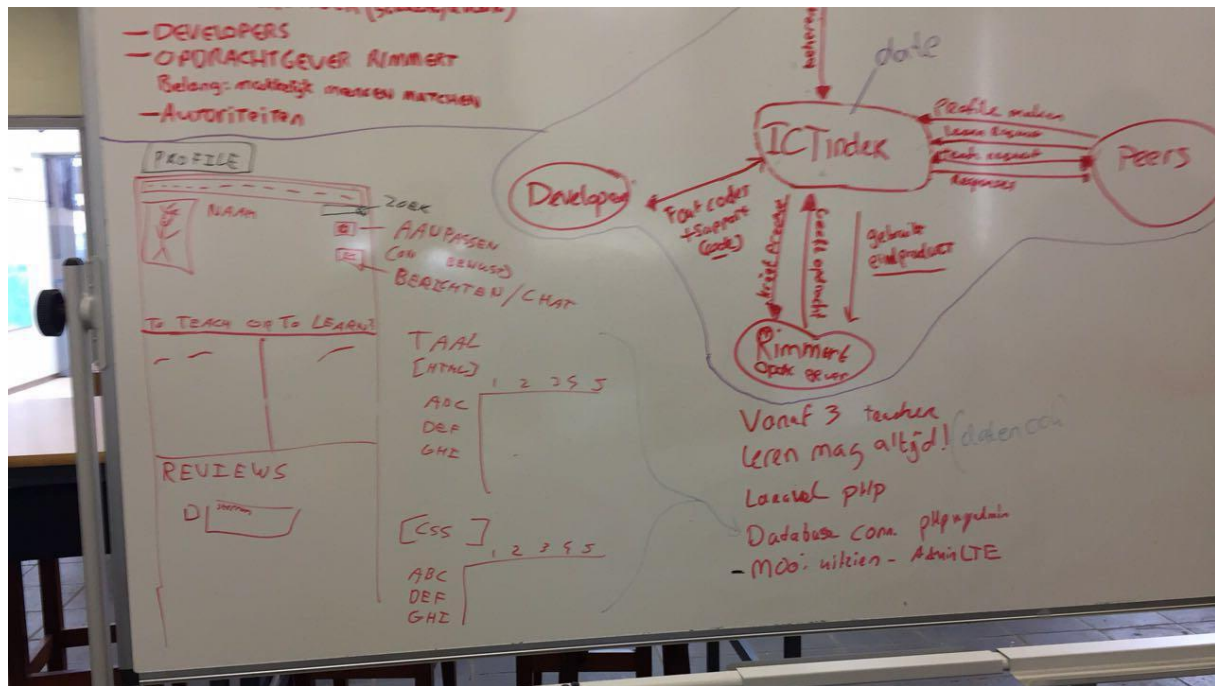 — DEVELOPERS
— OPDRACHTGEVER RIMMERT
Belang: makkelijk mensen matchen
— Autoriteiten
PROFILE
NAAM
ZOEK
AANPASSEN
BERICHTEN/CHAT
To TEACH OR To LEARN?
REVIEWS
TAAL
[HTML]
1 2 3 4 5
ABC
DEF
GHI
[CSS]
1 2 3 4 5
ABC
DEF
GHI
date
ICTinder
Profile maken
Learn Request
Teach request
Responses
Peers
Developer
Fout codes
+ Support
(code)
krijgt product
Geeft opdracht
gebruikt
eindproduct
Rimmert
Opdr. gever
Vanaf 3 teachen
leren mag altijd! (daten ook
Laravel pHp
Database conn. pHpmyadmin
- Mooi uitzien - AdminLTE